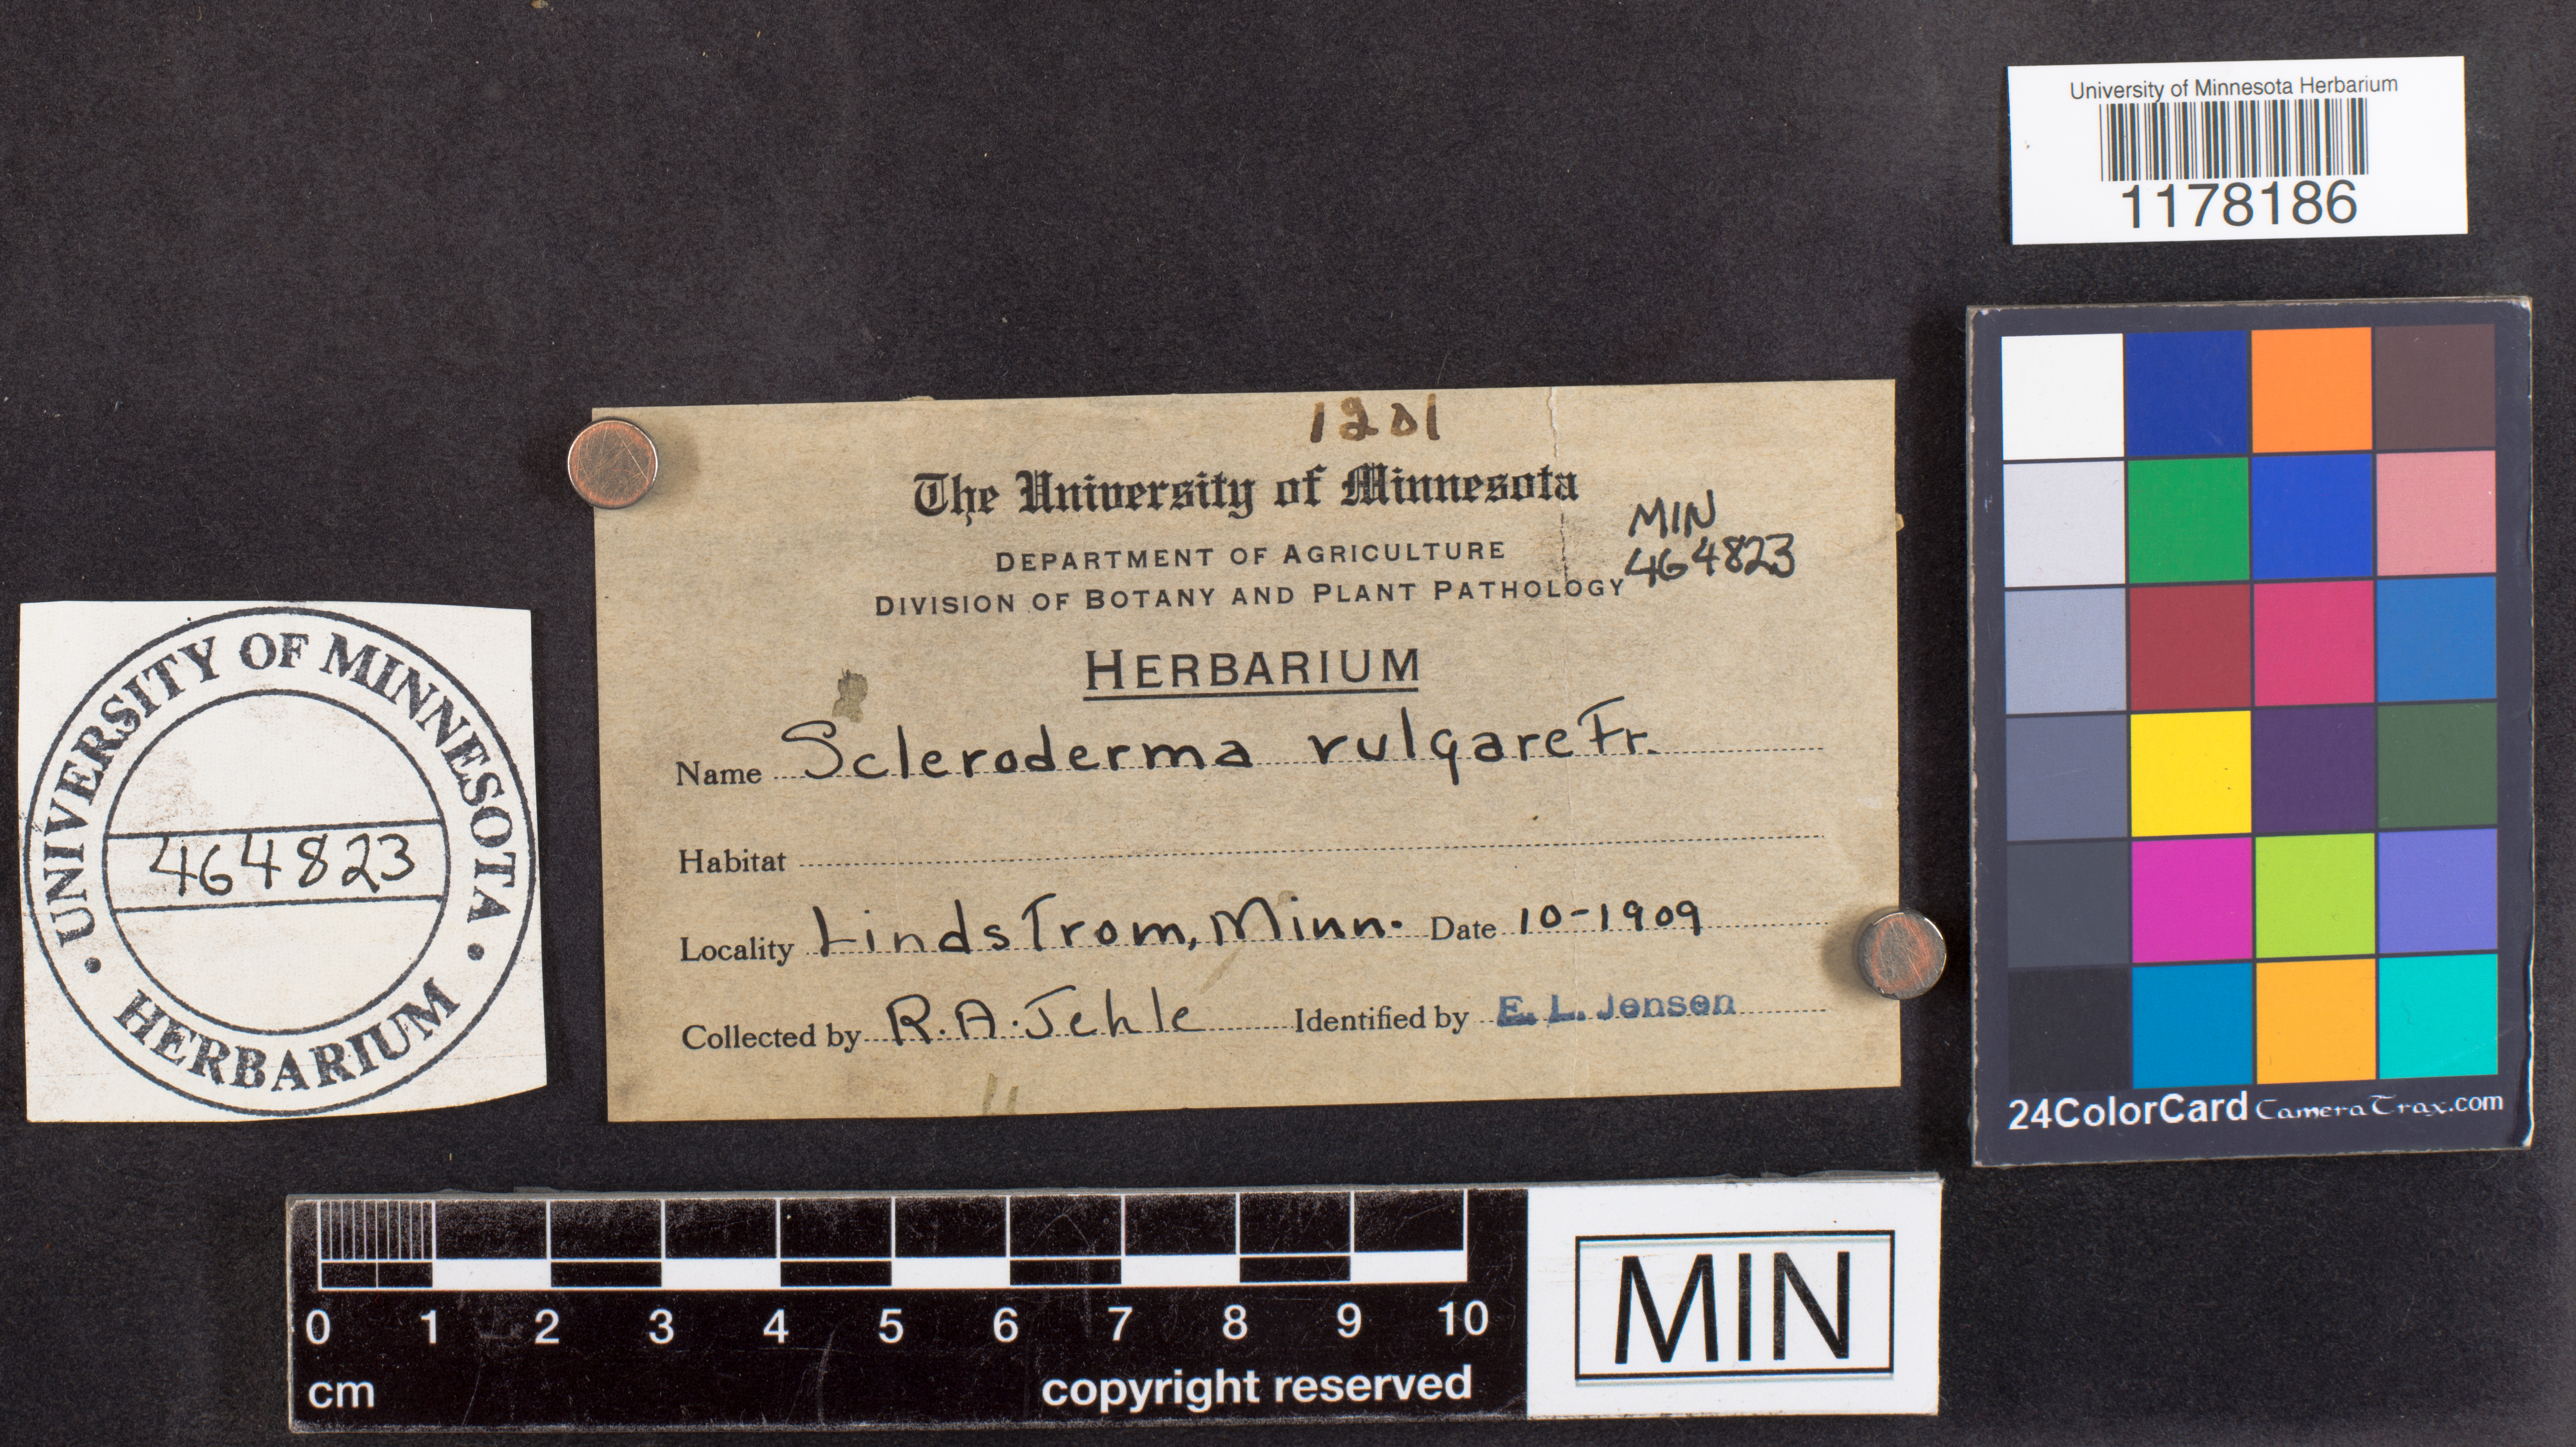 University of Minnesota Herbarium
1178186
1201
The University of Minnesota
MIN
464823
DEPARTMENT OF AGRICULTURE
DIVISION OF BOTANY AND PLANT PATHOLOGY
HERBARIUM
Name Scleroderma vulgare Fr.
Habitat
Locality Lindstrom, Minn. Date 10-1909
Collected by R.A. Jehle Identified by E. L. Jensen
UNIVERSITY OF MINNESOTA
464823
HERBARIUM
24ColorCard CameraTrax.com
0 1 2 3 4 5 6 7 8 9 10
cm
copyright reserved
MIN